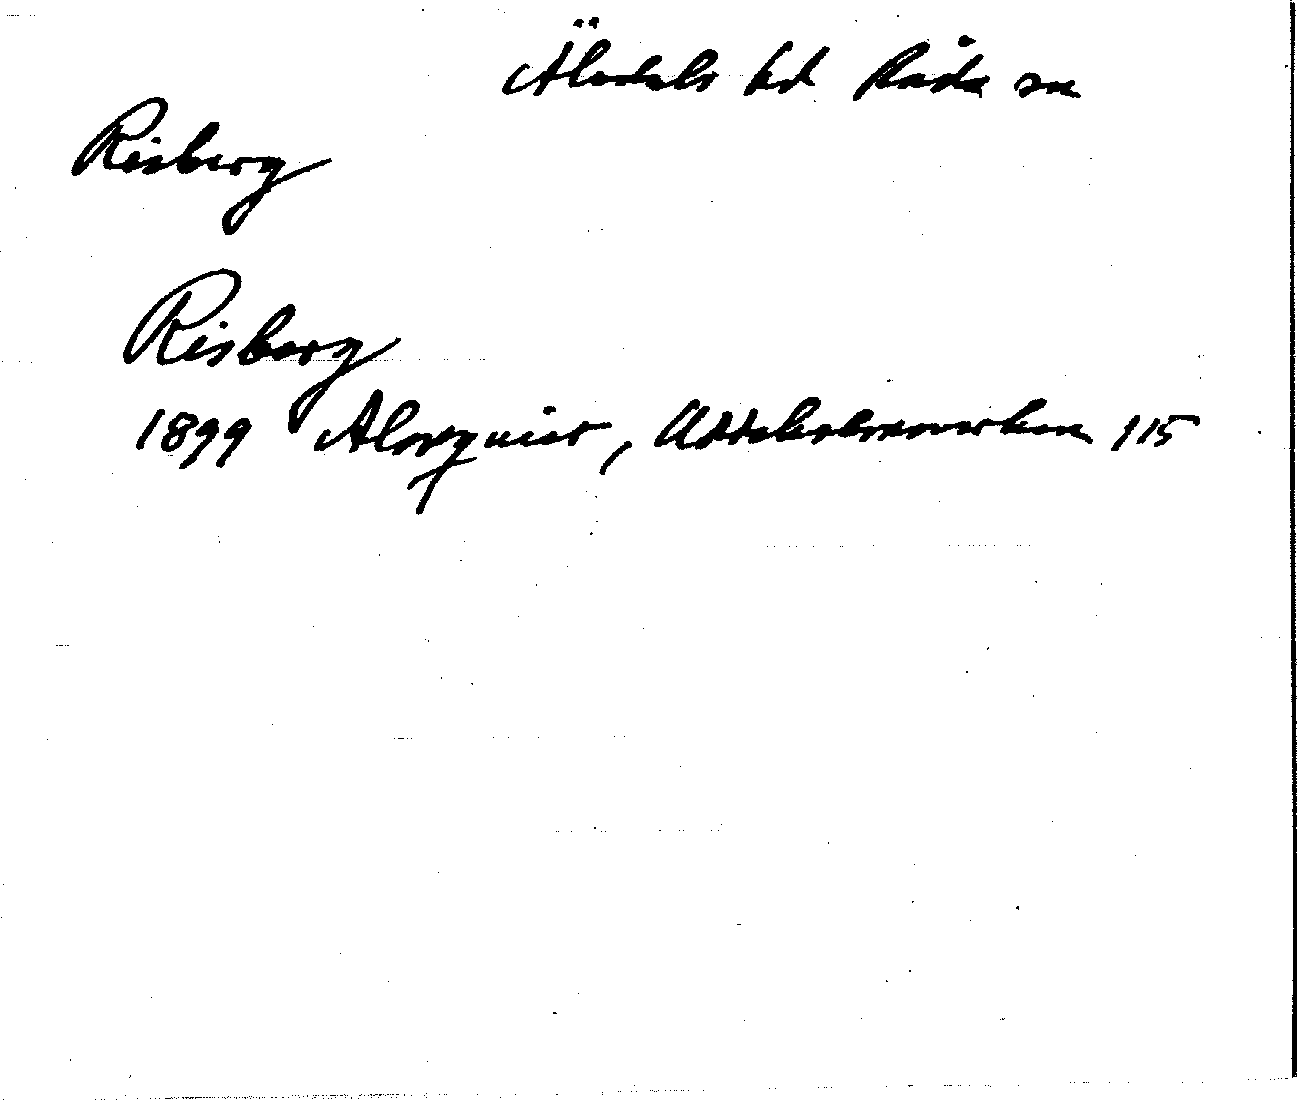 Älvdals hd Råda sn
Risberg
Risberg
1899 Almquist, Uddeholmsverken 115